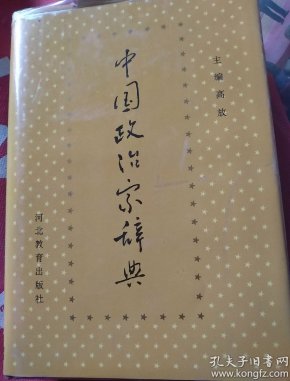 主编高放
中国政治家辞典
河北教育出版社
孔夫子旧书网
www.kongfz.com